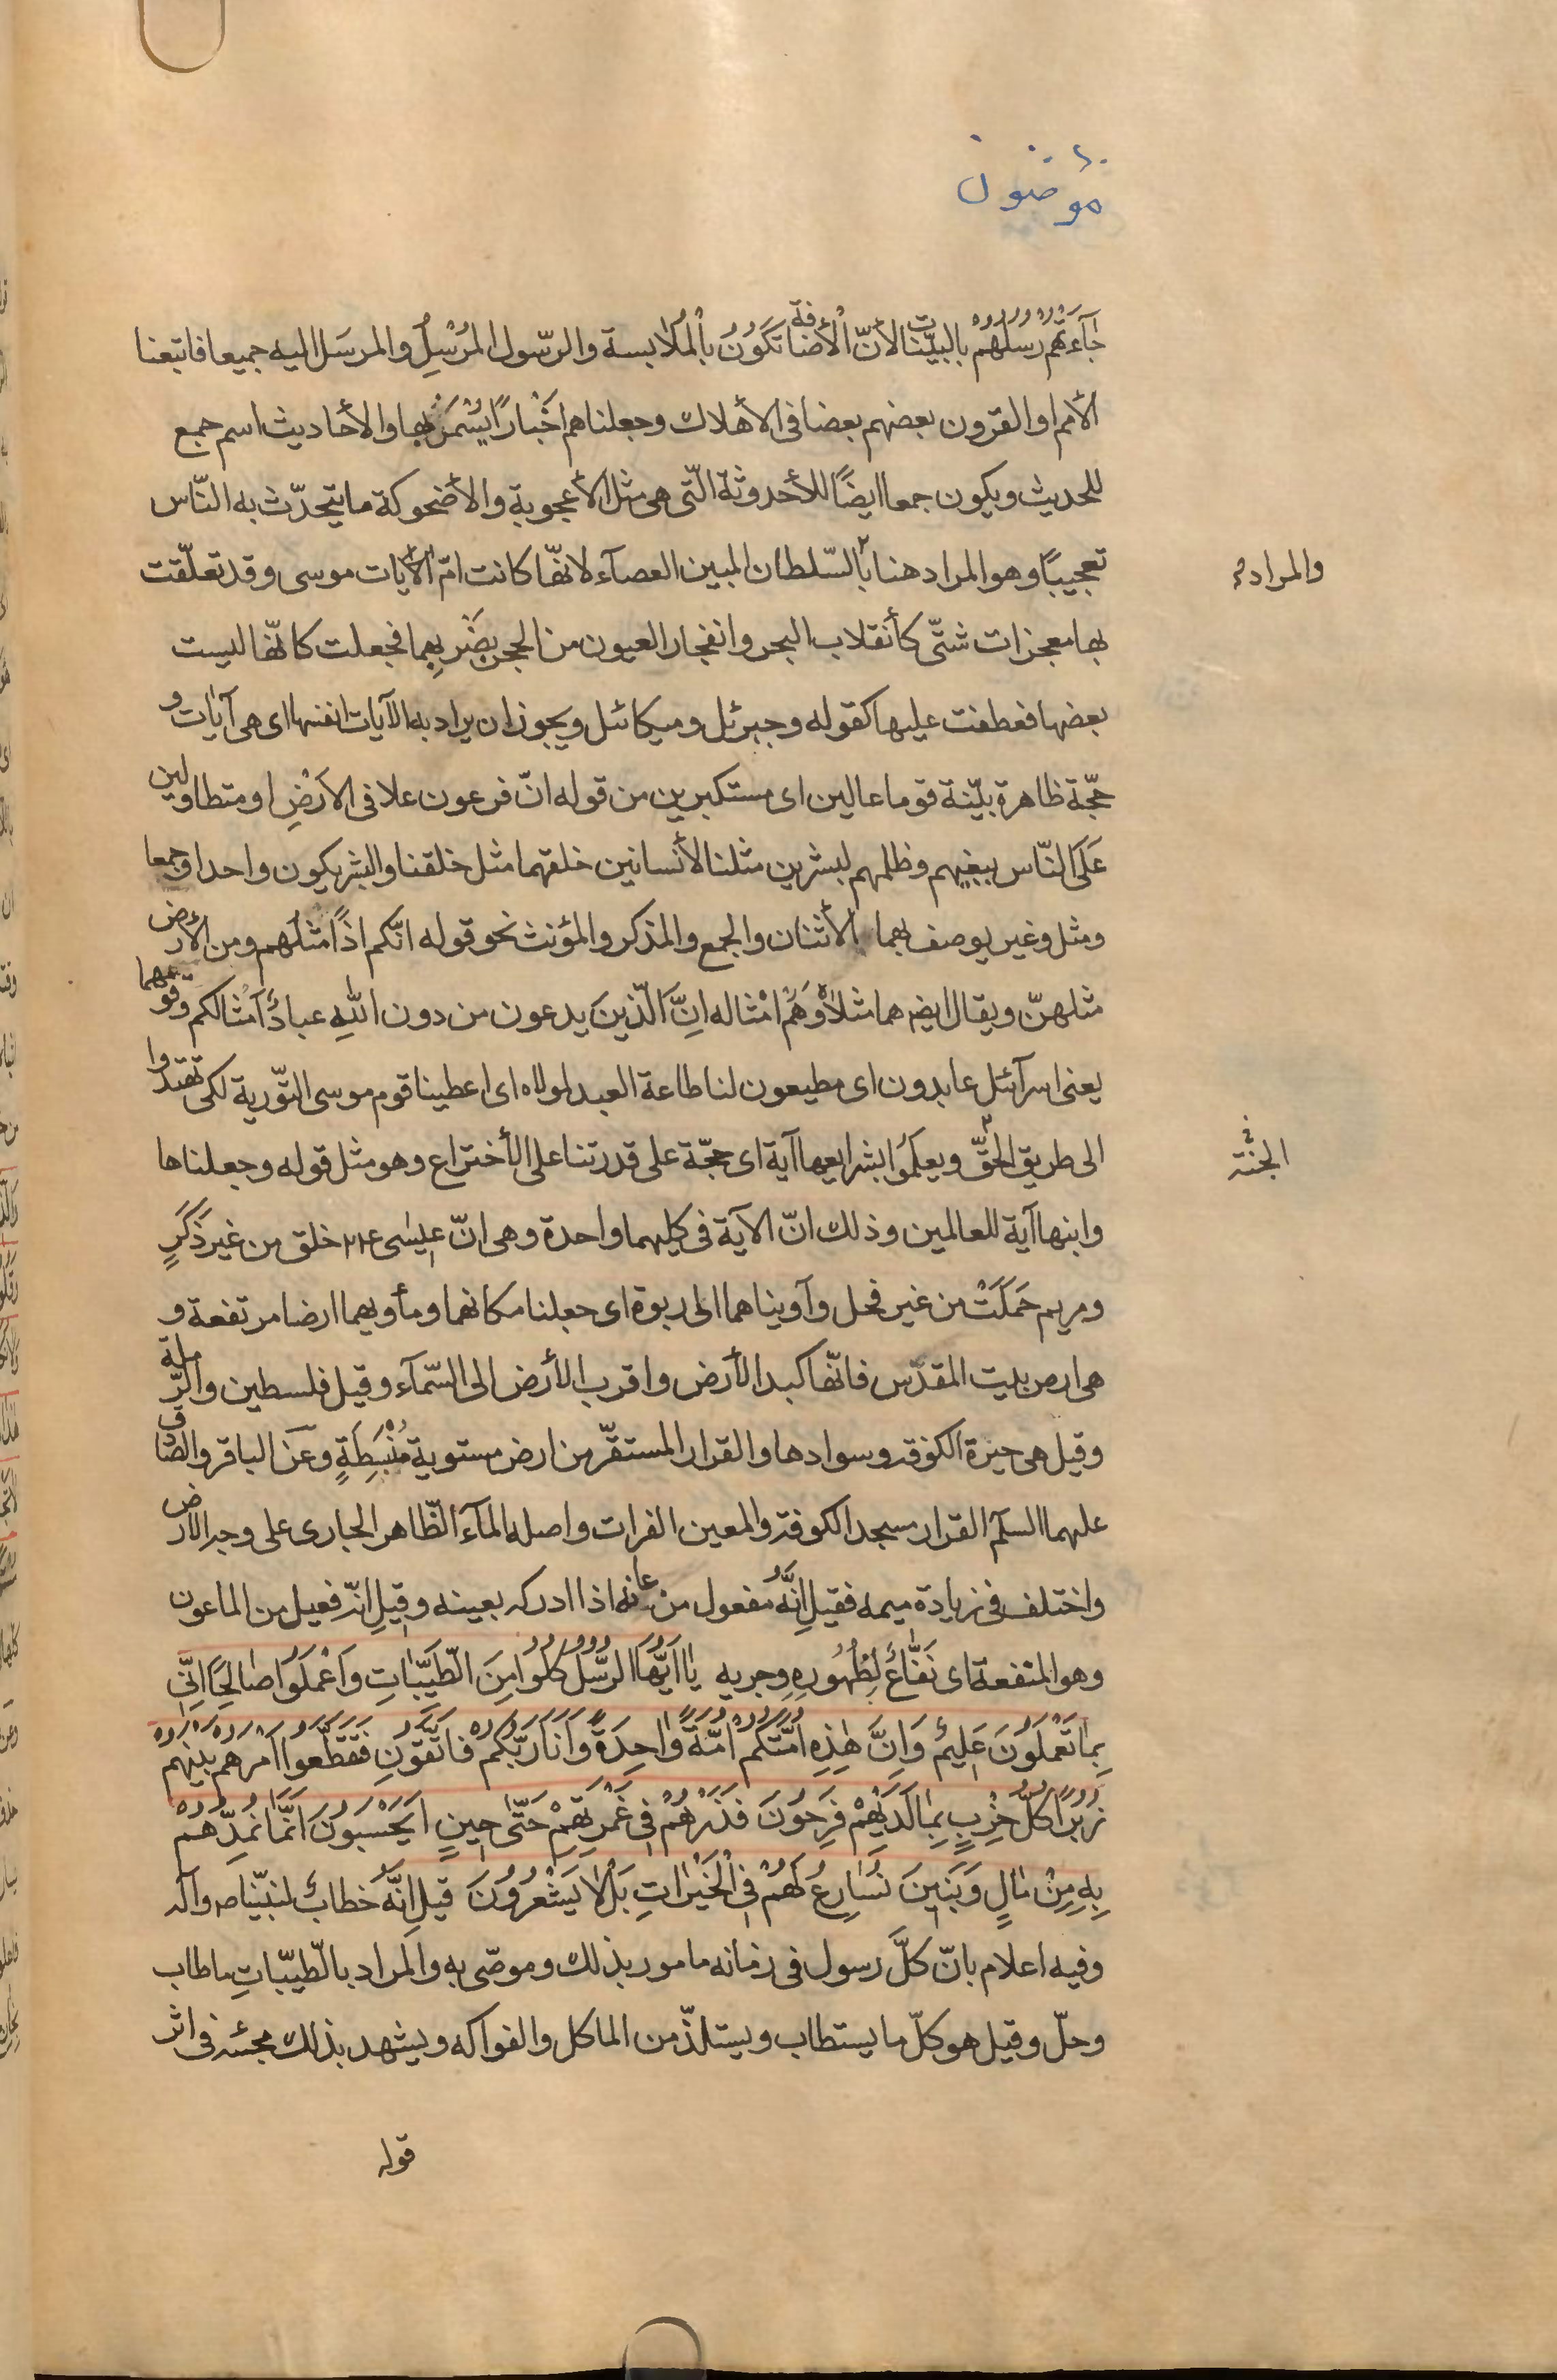 مؤمنون
جآءتهم رسلهم بالبيّنات لأنّ الأضافة تكون بالملابسة والرّسول المرسِل والمرسَل اليه جميعا فاتبعنا
الأمم او القرون بعضهم بعضا فى الأهلاك وجعلناهم اخبارًا يسمر بها والأحاديث اسم جمع
للحديث ويكون جمعا ايضًا للأحدوثة الّتى هى مثل الأعجوبة والأضحوكة ما يتحدّث به النّاس
تعجيبًا وهو المراد هنا بالسّلطان المبين العصآء لانّها كانت امّ الآيات موسى وقد تعلّقت
والمراد
بها معجزات شتّى كأنقلاب البحر وانفجار العيون من الحجر بضربهما فجعلت كانّها ليست
بعضها فعطفت عليها كقوله وجبرئل وميكائل ويجوز ان يراد به الآيات انفسها اى هى آيات و
حجّة ظاهرة بيّنة قوما عالين اى مستكبرين من قوله انّ فرعون علا فى الأرضِ او متطاولين
عَلَى النّاس ببغيهم وظلمهم لبشرين مثلنا لأنسانين خلقهما مثل خلقنا والبشر يكون واحدا وجمعا
ومثل وغير يوصف بهما الأثنان والجمع والمذكر والمؤنث نحو قوله انّكم اذًا مثلهم ومن الأرض
مثلهنّ ويقال ايضا هما مثلاه وهم امثاله انَّ الّذينَ يدعون من دون اللّهِ عبادٌ امثالكم وقومهما
يعنى اسرآئل عابدون اى مطيعون لنا طاعة العبد لمولاه اى اعطينا قوم موسى التّورية لكى تهتدوا
الى طريق الحقّ ويعلموا بشرايعها آية اى حجّة على قدرتنا على الأختراع وهو مثل قوله وجعلناها
وابنها آية للعالمين وذلك انّ الآية فى كليهما واحدة وهى انّ عيسى ع خلق من غير ذَكَرٍ
ومريم حَمَلَتْ من غير فحل وآويناهما الى ربوة اى جعلنا مكانهما ومأويهما ارضا مرتفعة و
هى ارض بيت المقدّس فانّها كبد الأرض واقرب الأرض الى السّمآء وقيل فلسطين والرّملة
وقيل هى حيرة الكوفة وسوادها والقرار المستقرّ من ارض مستوية منبسطةٍ وعن الباقر والصّادق
عليهما السلام القرار مسجد الكوفة والمعين الفرات واصله المآء الظّاهر الجارى على وجه الأرض
واختلف فى زيادة ميمه فقيل انّه مفعول من عانه اذا ادركه بعينه وقيل انّه فعيل من الماعون
وهو المنفعة اى نفّاعٌ لِظُهُورِهِ وجريه يا ايّها الرّسُلُ كُلُوا مِنَ الطّيّباتِ وَاعْمَلُوا صالِحًا اِنّى
بِما تَعْمَلُونَ عَليمٌ وَاِنَّ هٰذِهِ اُمّتُكُمْ اُمّةً واحِدَةً وَاَنَا رَبُّكُمْ فَاتَّقُونِ فَتَقَطَّعُوا اَمْرَهُم بَيْنَهُمْ
زُبُرًا كُلُّ حِزْبٍ بِما لَدَيْهِمْ فَرِحُونَ فَذَرْهُمْ فى غَمْرَتِهِمْ حَتّى حينٍ اَيَحْسَبُونَ اَنَّما نُمِدُّهُمْ
بِهِ مِنْ مالٍ وَبَنينَ نُسارِعُ لَهُمْ فى الْخَيْراتِ بَلْ لا يَشْعُرُونَ قيل انّه خطابٌ لنبيّنا ص وآله
وفيه اعلام بانّ كلّ رسول فى زمانه مامور بذلك وموصّى به والمراد بالطّيّباتِ ما طاب
وحلّ وقيل هو كلّ ما يستطاب ويستلذّ من الماكل والفواكه ويشهد بذلك مجئه فى اثر
قوله